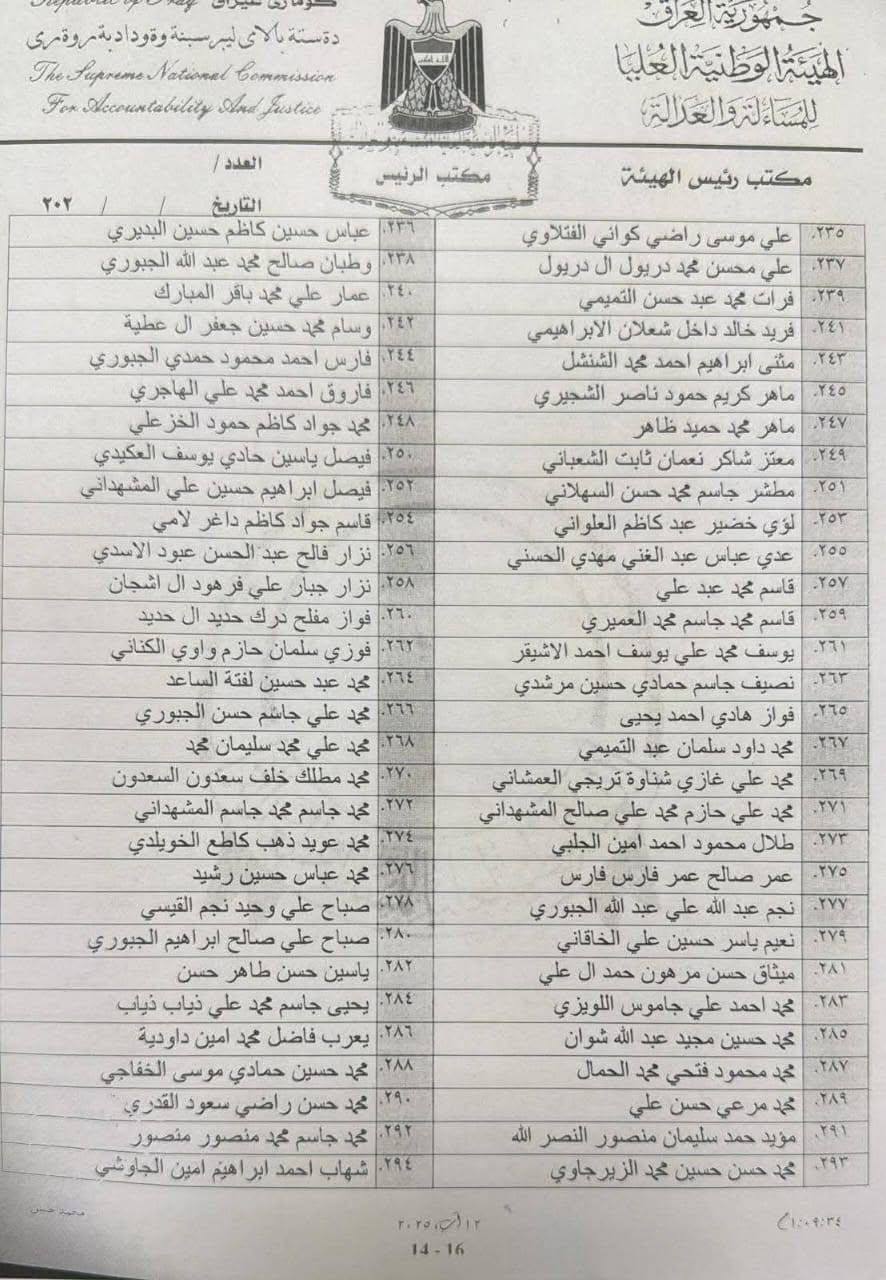 جمهورية العراق
الهيئة الوطنية العليا
للمساءلة والعدالة
Republic of Iraq
The Supreme National Commission
For Accountability And Justice
مكتب رئيس الهيئة
مكتب الرئيس
العدد /
التاريخ / / ٢٠٢
٢٣٥. علي موسى راضي كواني الفتلاوي
٢٣٦. عباس حسين كاظم حسين البديري
٢٣٧. علي محسن محمد دريول ال دريول
٢٣٨. وطبان صالح محمد عبد الله الجبوري
٢٣٩. فرات محمد عبد حسن التميمي
٢٤٠. عمار علي محمد باقر المبارك
٢٤١. فريد خالد داخل شعلان الابراهيمي
٢٤٢. وسام محمد حسين جعفر ال عطية
٢٤٣. مثنى ابراهيم احمد محمد الشنشل
٢٤٤. فارس احمد محمود حمدي الجبوري
٢٤٥. ماهر كريم حمود ناصر الشجيري
٢٤٦. فاروق احمد محمد علي الهاجري
٢٤٧. ماهر محمد حميد ظاهر
٢٤٨. محمد جواد كاظم حمود الخزعلي
٢٤٩. معتز شاكر نعمان ثابت الشعباني
٢٥٠. فيصل ياسين حادي يوسف العكيدي
٢٥١. مطشر جاسم محمد حسن السهلاني
٢٥٢. فيصل ابراهيم حسين علي المشهداني
٢٥٣. لؤي خضير عبد كاظم العلواني
٢٥٤. قاسم جواد كاظم داغر لامي
٢٥٥. عدي عباس عبد الغني مهدي الحسني
٢٥٦. نزار فالح عبد الحسن عبود الاسدي
٢٥٧. قاسم محمد عبد علي
٢٥٨. نزار جبار علي فرهود ال اشجان
٢٥٩. قاسم محمد جاسم محمد العميري
٢٦٠. فواز مفلح درك حديد ال حديد
٢٦١. يوسف محمد علي يوسف احمد الاشيقر
٢٦٢. فوزي سلمان حازم واوي الكناني
٢٦٣. نصيف جاسم حمادي حسين مرشدي
٢٦٤. محمد عبد حسين لفتة الساعد
٢٦٥. فواز هادي احمد يحيى
٢٦٦. محمد علي جاسم حسن الجبوري
٢٦٧. محمد داود سلمان عبد التميمي
٢٦٨. محمد علي محمد سليمان محمد
٢٦٩. محمد علي غازي شناوة تريجي العمشاني
٢٧٠. محمد مطلك خلف سعدون السعدون
٢٧١. محمد علي حازم محمد علي صالح المشهداني
٢٧٢. محمد جاسم محمد جاسم المشهداني
٢٧٣. طلال محمود احمد امين الجلبي
٢٧٤. محمد عويد ذهب كاطع الخويلدي
٢٧٥. عمر صالح عمر فارس فارس
٢٧٦. محمد عباس حسين رشيد
٢٧٧. نجم عبد الله علي عبد الله الجبوري
٢٧٨. صباح علي وحيد نجم القيسي
٢٧٩. نعيم ياسر حسين علي الخاقاني
٢٨٠. صباح علي صالح ابراهيم الجبوري
٢٨١. ميثاق حسن مرهون حمد ال علي
٢٨٢. ياسين حسن طاهر حسن
٢٨٣. محمد احمد علي جاموس اللويزي
٢٨٤. يحيى جاسم محمد علي ذياب ذياب
٢٨٥. محمد حسين مجيد عبد الله شوان
٢٨٦. يعرب فاضل محمد امين داودية
٢٨٧. محمد محمود فتحي محمد الحمال
٢٨٨. محمد حسين حمادي موسى الخفاجي
٢٨٩. محمد مرعي حسن علي
٢٩٠. محمد حسن راضي سعود القدري
٢٩١. مؤيد حمد سليمان منصور النصر الله
٢٩٢. محمد جاسم محمد منصور منصور
٢٩٣. محمد حسن حسين محمد الزيرجاوي
٢٩٤. شهاب احمد ابراهيم امين الجاوشي
١٠:٠٩:٣٤
١٢ آب، ٢٠٢٥
محمد حسن
14 - 16